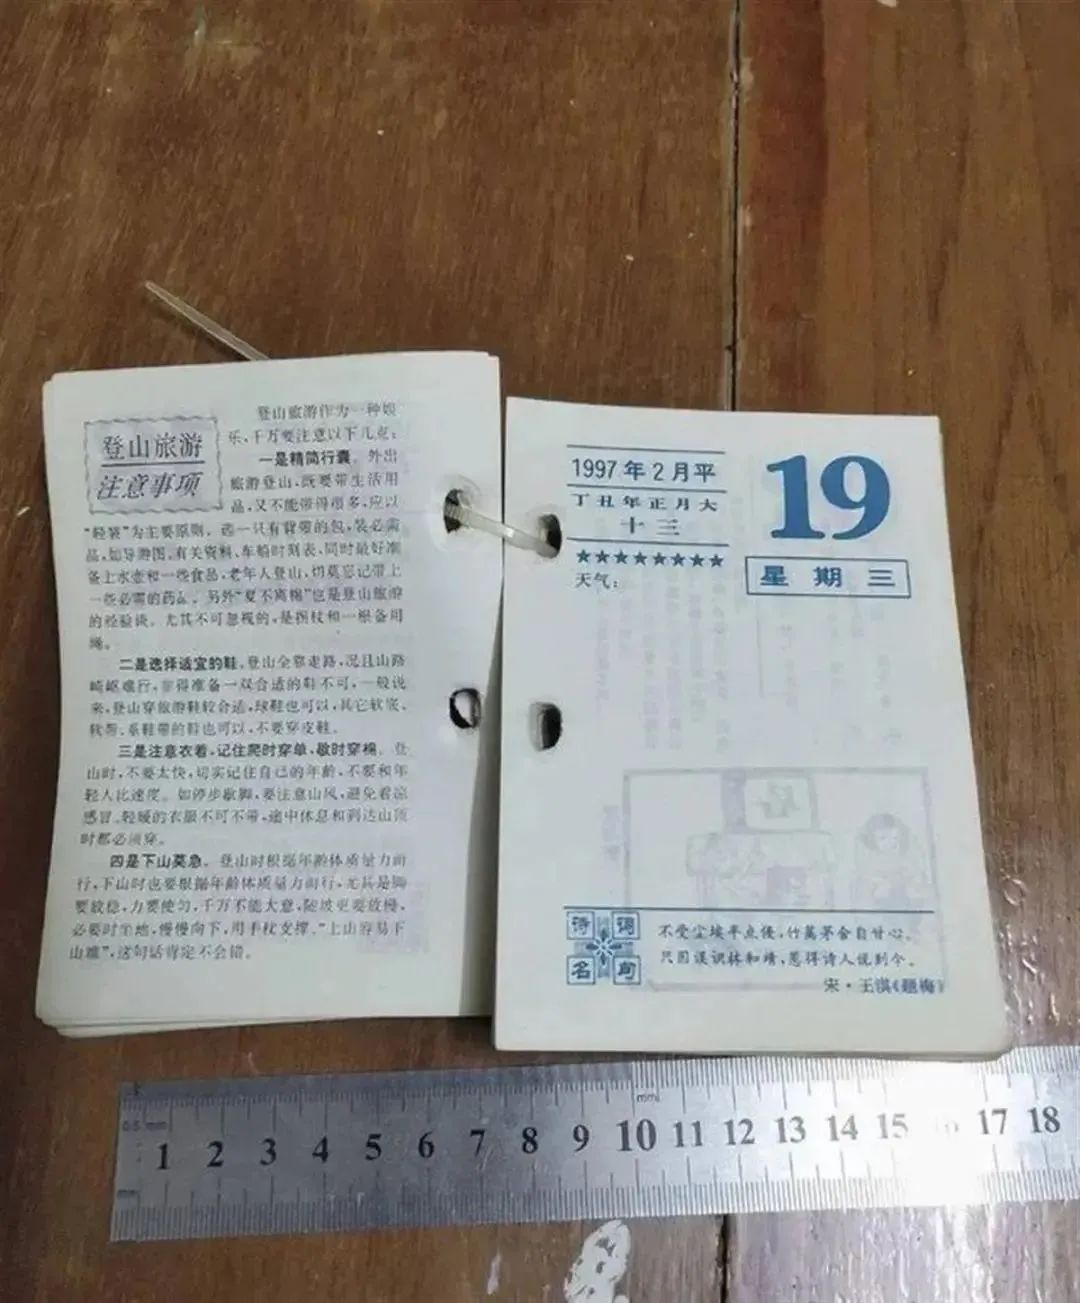 登山旅游
注意事项
登山旅游作为一种娱
乐,千万要注意以下几点:
一是精简行囊。外出
旅游登山,既要带生活用
品,又不能带得很多,应以
“轻装”为主要原则。选一只有背带的包,装必需
品,如导游图、有关资料、车船时刻表,同时最好准
备上水壶和一些食品,老年人登山,切莫忘记带上
一些必需的药品。另外“夏不离棉”也是登山旅游
的经验谈。尤其不可忽视的,是拐杖和一根备用
绳。
二是选择适宜的鞋。登山全靠走路,况且山路
崎岖难行,非得准备一双合适的鞋不可,一般说
来,登山穿旅游鞋较合适,球鞋也可以,其它软底、
软帮、系鞋带的鞋也可以,不要穿皮鞋。
三是注意衣着,记住爬时穿单,歇时穿棉。登
山时,不要太快,切实记住自己的年龄,不要和年
轻人比速度。如停步歇脚,要注意山风,避免着凉
感冒,轻暖的衣服不可不带,途中休息和到达山顶
时都必须穿。
四是下山莫急。登山时根据年龄体质量力而
行,下山时也要根据年龄体质量力而行,尤其是脚
要放稳,力要使匀,千万不能大意,陡坡更要放慢,
必要时坐地,慢慢向下,用手杖支撑。“上山容易下
山难”,这句话肯定不会错。
1997年2月平
丁丑年正月大
十三
★★★★★★★★
天气:
19
星期三
诗词
名句
不受尘埃半点侵,竹篱茅舍自甘心。
只因误识林和靖,惹得诗人说到今。
宋·王淇《题梅》
0.5mm
mm
mm
1 2 3 4 5 6 7 8 9 10 11 12 13 14 15 16 17 18